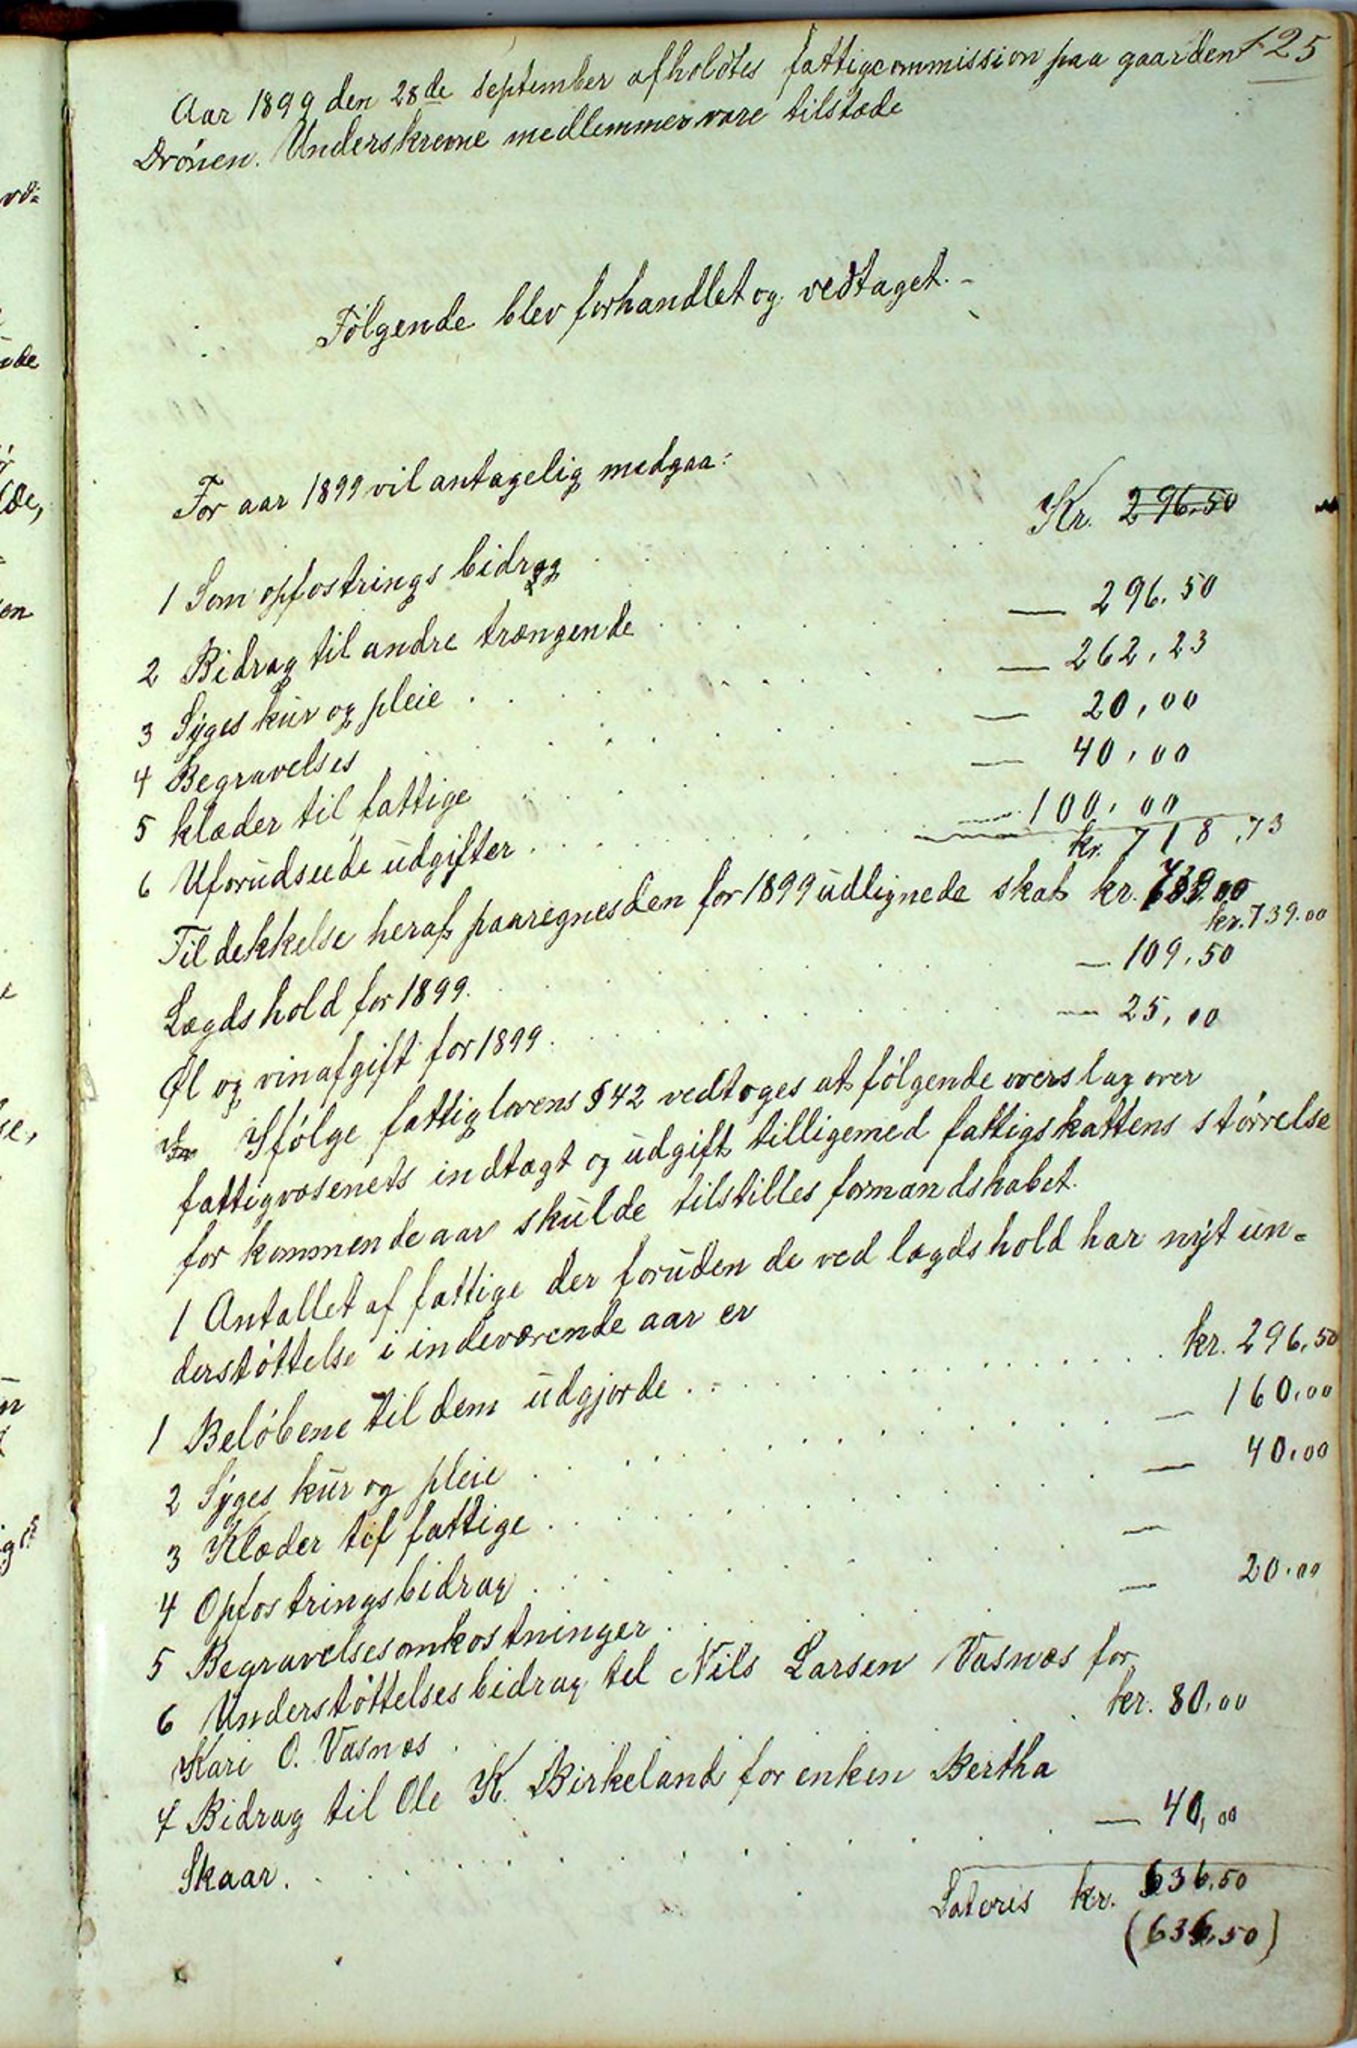 125
Aar 1899 den 28de september afholdtes fattigcommission paa gaarden
Drönen. Underskrevne medlemmer vare tilstæde
Følgende blev forhandlet og vedtaget. -
For aar 1899 vil antagelig medgaa:
Kr. 296.50
1 Som opfostrings bidrag . . . . . . — 296.50
2 Bidrag til andre trængende . . . . . — 262,23
3 Syges kur og pleie . . . . . — 20,00
4 Begravelses . . . . . — 40,00
5 klæder til fattige . . . . . — 100,00
6 Uforudseede udgifter . . . . . kr. 718,73
Til dekkelse heraf paaregnes den for 1899 udlignede skat kr. 739.00
kr. 739.00
Lægdshold for 1899. . . . . . — 109,50
Øl og vinafgift for 1899. . . . . . — 25,00
Ifølge fattiglovens § 42 vedtoges at følgende overslag over
fattigvæsenets indtægt og udgift tilligemed fattigskattens størrelse
for kommende aar skulde tilstilles formandskabet.
1 Antallet af fattige der foruden de ved lægdshold har nyt un-
derstøttelse i indeværende aar er
1 Beløbene til dem udgjorde . . . . . kr. 296,50
2 Syges kur og pleie . . . . . — 160,00
3 Klæder til fattige . . . . . — 40,00
4 Opfostringsbidrag . . . . . —
5 Begravelsesomkostninger . . . . . — 20.00
6 Understøttelsesbidrag til Nils Larsen Vasnæs for
Kari O. Vasnæs . . . kr. 80,00
7 Bidrag til Ole K. Birkeland for enken Bertha
Skaar. . . . . . — 40,00
Lateris kr. 636,50
(636,50)